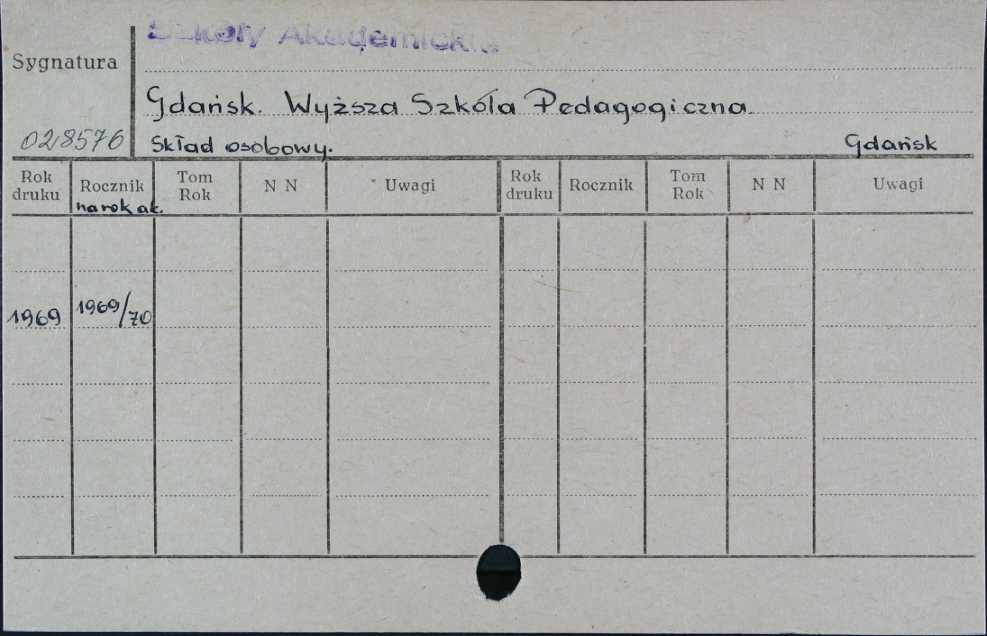 Szkoły Akademickie
Sygnatura
Gdańsk. Wyższa Szkóła Pedagogiczna.
028576 Skład osobowy. Gdańsk
Rok druku Rocznik Tom Rok N N Uwagi Rok druku Rocznik Tom Rok N N Uwagi
na rok ak.
1969 1969/70